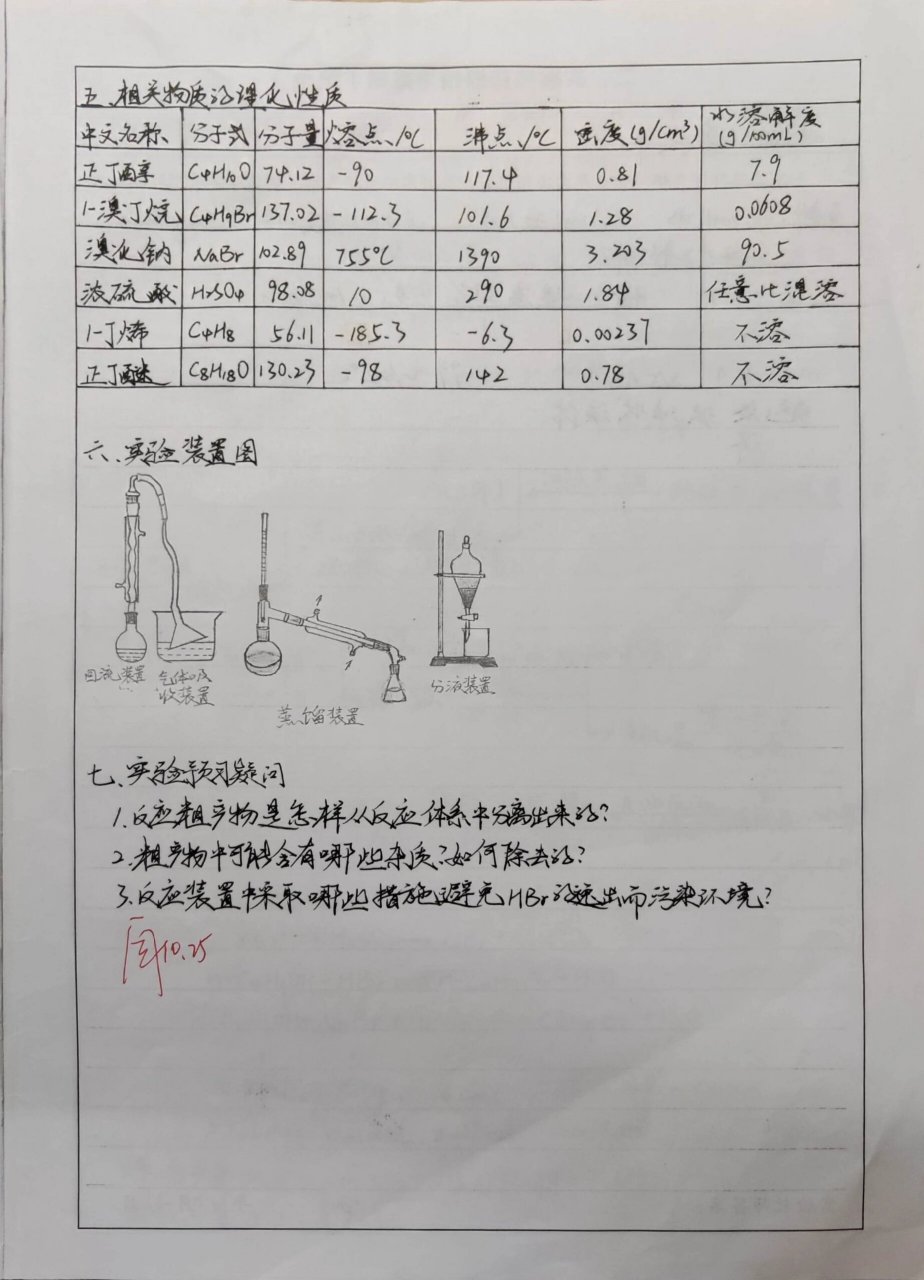 五、相关物质的理化性质
中文名称 分子式 分子量 熔点/℃ 沸点/℃ 密度(g/cm³) 水溶解度(g/100mL)
正丁醇 C4H10O 74.12 -90 117.4 0.81 7.9
1-溴丁烷 C4H9Br 137.02 -112.3 101.6 1.28 0.0608
溴化钠 NaBr 102.89 755℃ 1390 3.203 90.5
浓硫酸 H2SO4 98.08 10 290 1.84 任意比混溶
1-丁烯 C4H8 56.11 -185.3 -6.3 0.00237 不溶
正丁醚 C8H18O 130.23 -98 142 0.78 不溶
六、实验装置图
回流装置
气体吸
收装置
蒸馏装置
分液装置
七、实验预习疑问
1.反应粗产物是怎样从反应体系中分离出来的?
2.粗产物中可能含有哪些杂质?如何除去的?
3.反应装置中采取哪些措施避免HBr的逸出而污染环境?
周10.25